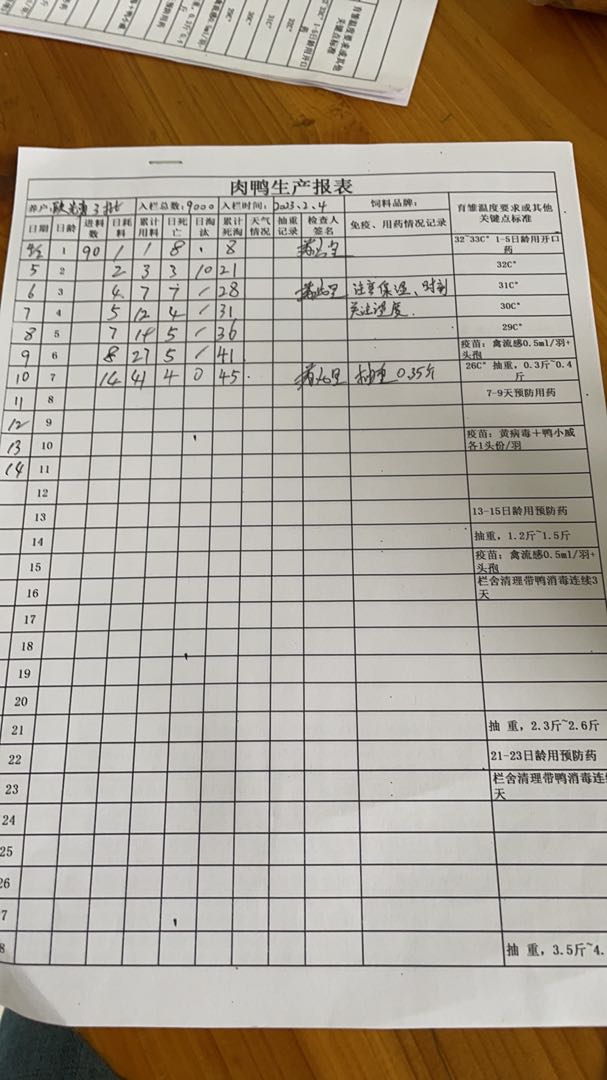 肉鸭生产报表
养户: 入栏总数:9000 入栏时间:2023.2.4 饲料品牌: 育雏温度要求或其他关键点标准
日期 日龄 进料数 日耗料 累计用料 日死亡 日淘汰 累计死淘 天气情况 抽重记录 检查人签名 免疫、用药情况记录
1 90 1 1 8 8 32~33C° 1-5日龄用开口药
5 2 2 3 3 10 21 32C°
6 3 4 7 7 / 28 注意保温、时刻 31C°
7 4 5 12 4 / 31 关注温度. 30C°
8 5 7 19 5 / 36 29C°
9 6 8 27 5 / 41 疫苗：禽流感0.5ml/羽+头孢
10 7 14 41 4 0 45 抽重 0.35斤 26C° 抽重，0.3斤~0.4斤
11 8 7-9天预防用药
12 9
13 10 疫苗：黄病毒＋鸭小威各1头份/羽
14 11
12
13 13-15日龄用预防药
14 抽重，1.2斤~1.5斤
15 疫苗：禽流感0.5ml/羽+头孢
16 栏舍清理带鸭消毒连续3天
17
18
19
20
21 抽 重，2.3斤~2.6斤
22 21-23日龄用预防药
23 栏舍清理带鸭消毒连 天
24
25
26
7
8 抽 重，3.5斤~4.